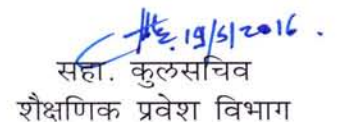 19/5/2016.
सहा. कुलसचिव
शैक्षणिक प्रवेश विभाग